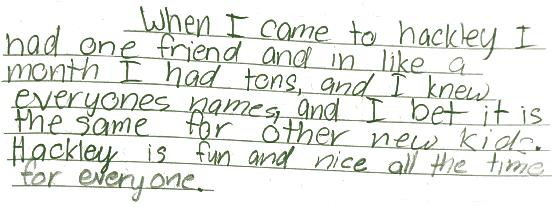 When I came to hackley I
had one friend and in like a
month I had tons, and I knew
everyones names, and I bet it is
the same for other new kids.
Hackley is fun and nice all the time
for everyone.